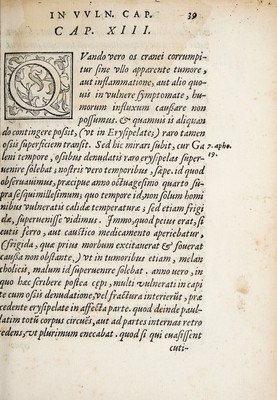 IN VVLN. CAP. 39
CAP. XIII.
QVando vero os cranei corrumpi-
tur sine vllo apparente tumore,
aut inflammatione, aut alio quo-
uis in vulnere symptomate, hu-
morum influxum causare non
possumus. & quamuis is aliquan
do contingere possit, (vt in Erysipelate) raro tamen
ossis superficiem transit. Sed hic mirari subit, cur Ga
leni tempore, osibus denudatis raro erysipelas super-
uenire solebat, nostris vero temporibus, sæpe. id quod
obseruauimus, præcipue anno octuagesimo quarto su-
pra sesquimillesimum; quo tempore id, non solum homi
nibus vulneratis calidæ temperaturæ; sed etiam frigi
dæ, superuenisse vidimus. Immo, quod peius erat, si
cutis ferro, aut caustico medicamento aperiebatur,
(frigida, quæ prius morbum excitauerat & fouerat
causa non obstante,) vt in tumoribus etiam, melan
cholicis, malum id superuenire solebat. anno uero, in
quo hæc scribere postea cepi, multi vulnerati in capi
te cum ossis denudatione, vel fractura interierūt, præ
cedente erysipelate in affecta parte. quod deinde paul-
latim totū corpus circuēs, aut ad partes internas retro
cedens, vt plurimum enecabat. quod si qui euasissent
cuti-
7. apho.
19.